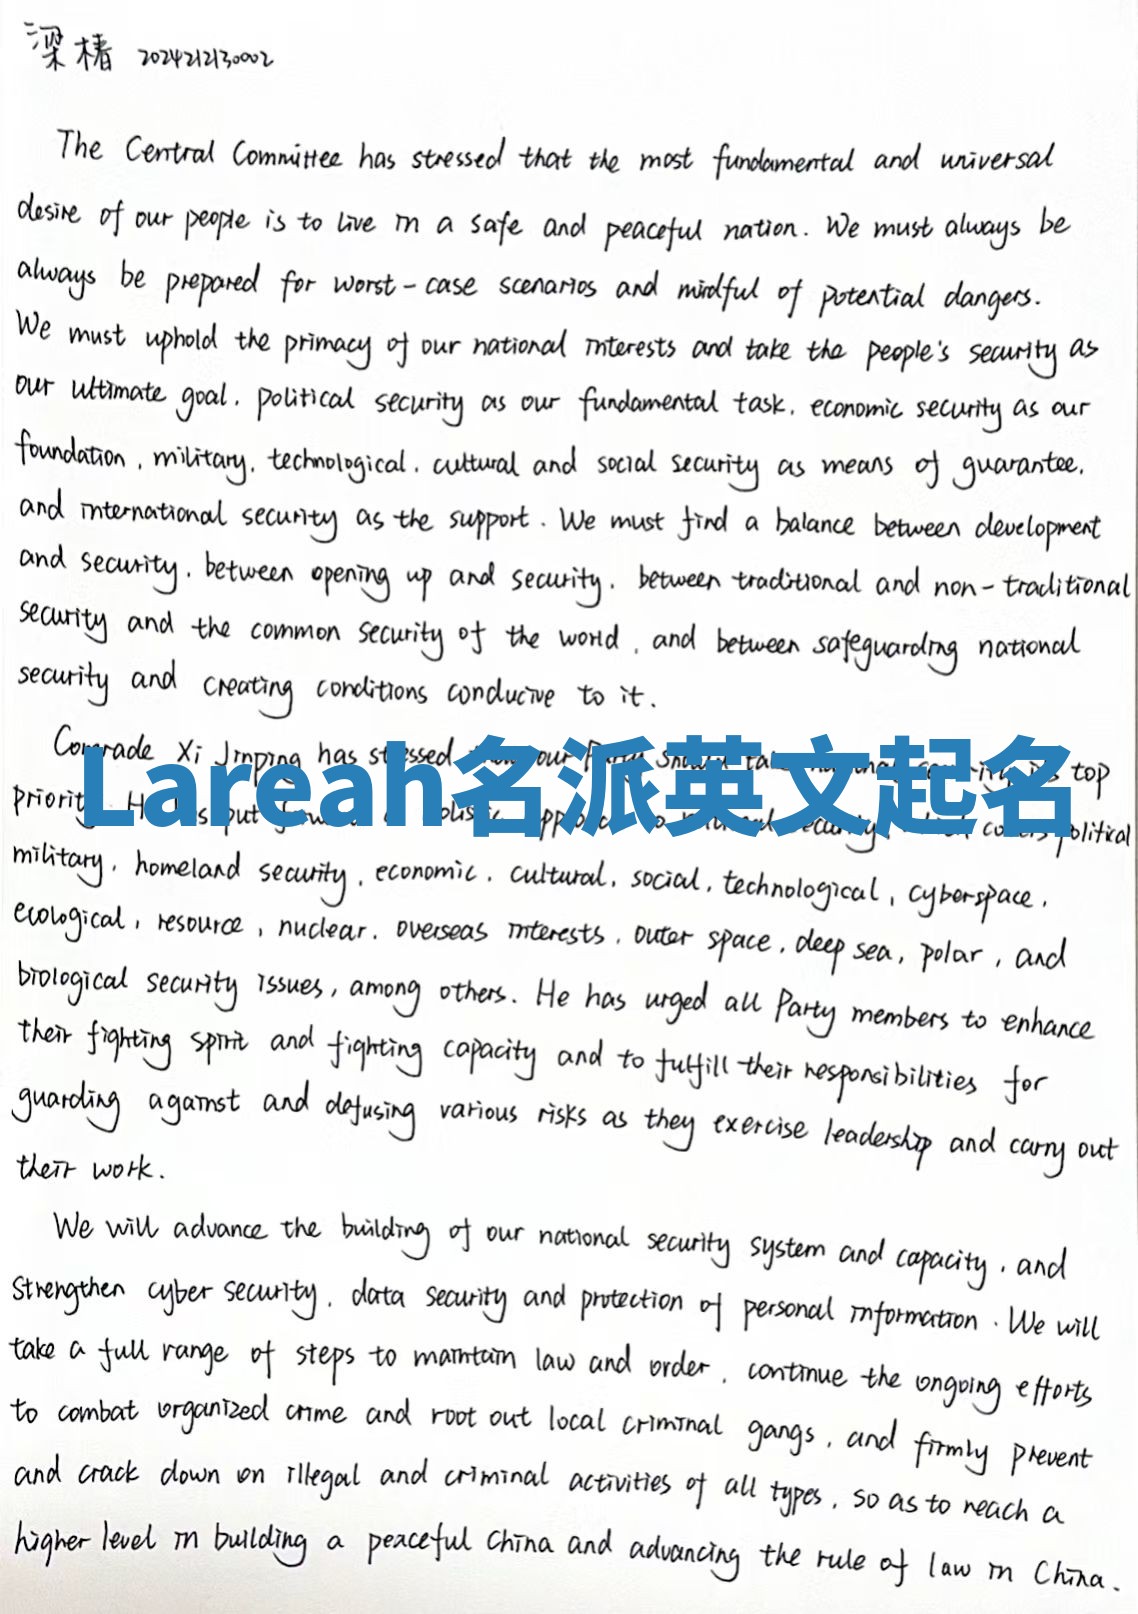 梁椿 2024212130002
The Central Committee has stressed that the most fundamental and universal
desire of our people is to live in a safe and peaceful nation. We must always be
always be prepared for worst-case scenarios and mindful of potential dangers.
We must uphold the primacy of our national interests and take the people's security as
our ultimate goal, political security as our fundamental task, economic security as our
foundation, military, technological, cultural and social security as means of guarantee,
and international security as the support. We must find a balance between development
and security, between opening up and security, between traditional and non-traditional
security and the common security of the world, and between safeguarding national
security and creating conditions conducive to it.
Comrade Xi Jinping has stressed our Party top
Lareah名派英文起名
priority put political
military, homeland security, economic, cultural, social, technological, cyberspace,
ecological, resource, nuclear, overseas interests, outer space, deep sea, polar, and
biological security issues, among others. He has urged all Party members to enhance
their fighting spirit and fighting capacity and to fulfill their responsibilities for
guarding against and defusing various risks as they exercise leadership and carry out
their work.
We will advance the building of our national security system and capacity, and
strengthen cyber security, data security and protection of personal information. We will
take a full range of steps to maintain law and order, continue the ongoing efforts
to combat organized crime and root out local criminal gangs, and firmly prevent
and crack down on illegal and criminal activities of all types, so as to reach a
higher level in building a peaceful China and advancing the rule of law in China.